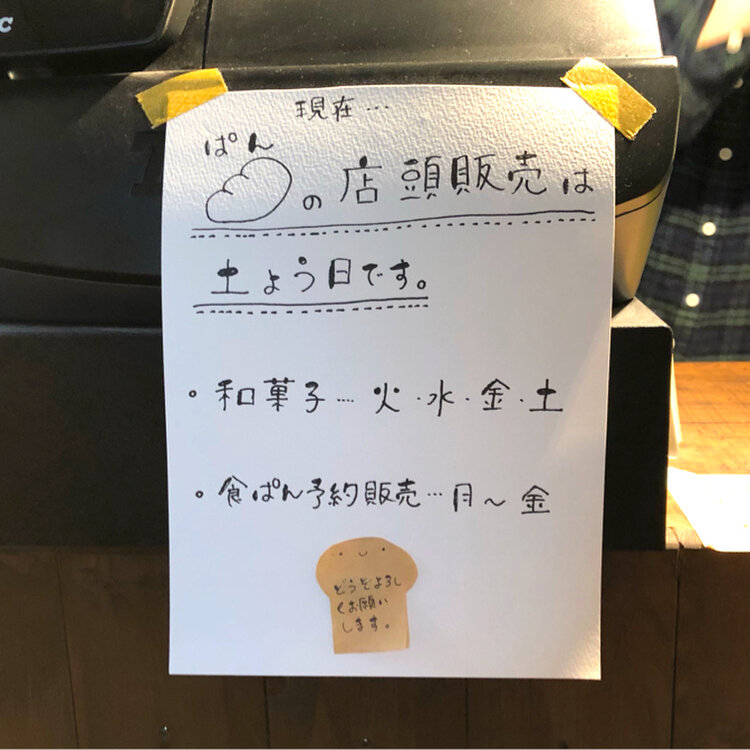 C
現在…
ぱん
の店頭販売は
土よう日です。
・和菓子…火・水・金・土
・食ぱん予約販売…月〜金
どうぞよろし
くお願い
します。